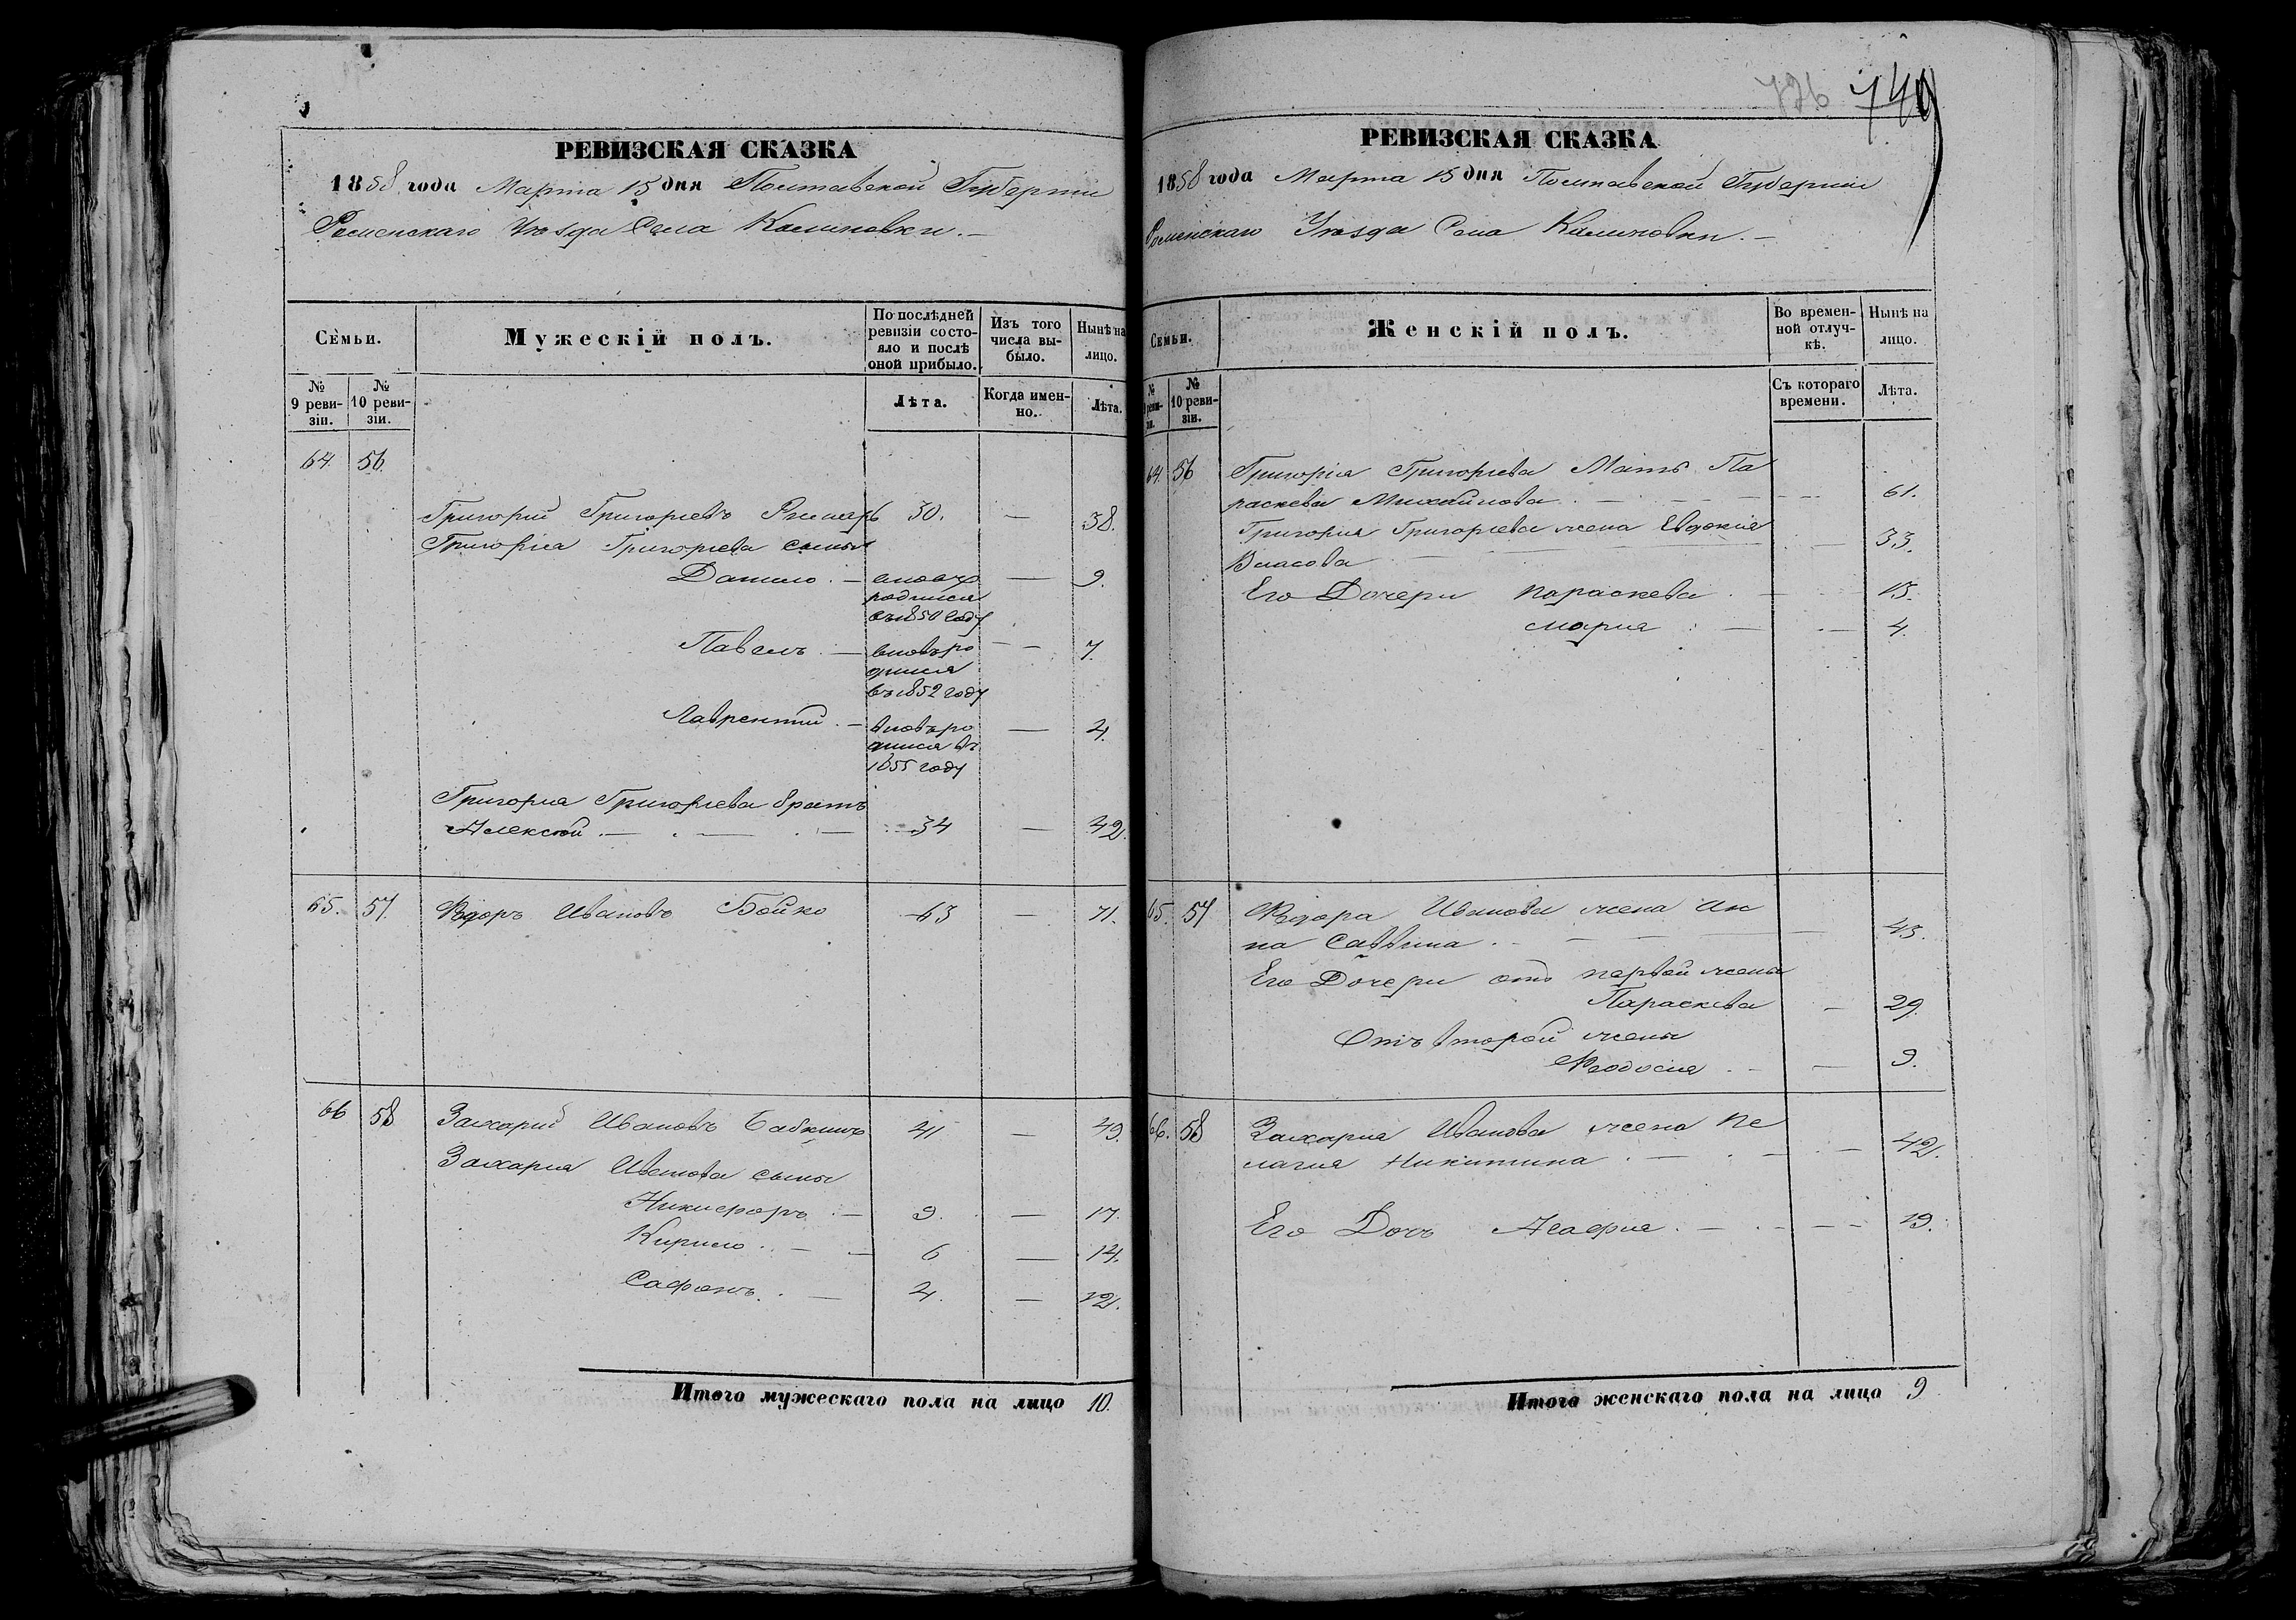 РЕВИЗСКАЯ СКАЗКА
1858 года Марта 15 дня Полтавской Губерніи
Роменскаго Уѣзда Села Калиновки.
Семьи.
Мужескій полъ.
По послѣдней ревизіи состояло и послѣ оной прибыло.
Изъ того числа выбыло.
Нынѣ на лицо.
№ 9 ревизіи.
№ 10 ревизіи.
Лѣта.
Когда именно.
Лѣта.
64. 56.
Григорій Григорьевъ 30. — 38.
Григорія Григорьева сыны
Данило. — вновь — 9.
родился
въ 1850 году
Павелъ. — вновь ро — 7.
дился
въ 1852 году
Лаврентій. — вновь ро — 4.
дился въ
1855 году
Григорія Григорьева братъ
Алексѣй. — 34 — 42.
65. 57. Ѳедоръ Ивановъ Бойко 63 — 71.
66 58 Захарій Ивановъ Бабкинъ 41 — 49.
Захарія Иванова сыны
Никифоръ — 9. — 17.
Кирило. — 6 — 14.
Сафонъ. — 4. — 12.
Итого мужескаго пола на лицо 10.
726 740
РЕВИЗСКАЯ СКАЗКА
1858 года Марта 15 дня Полтавской Губерніи
Роменскаго Уѣзда Села Калиновки. —
Семьи.
Женскій полъ.
Во временной отлучкѣ.
Нынѣ на лицо.
№ 9 ревизіи.
№ 10 ревизіи.
Съ котораго времени.
Лѣта.
64. 56 Григорія Григорьева Мать Па
раскева Михайлова. — 61.
Григорія Григорьева жена Евдокія
Власова — 33.
Его Дочери Параскева. — 15.
Марія — 4.
65. 57 Ѳедора Иванова жена Ан
на Саввина. — 43.
Его Дочери отъ первой жены
Параскева — 29.
Отъ второй жены
Ѳеодосія — 9.
66. 58 Захарія Иванова жена Пе
лагія Никитина. — 42.
Его Дочь Агафія. — 19.
Итого женскаго пола на лицо 9